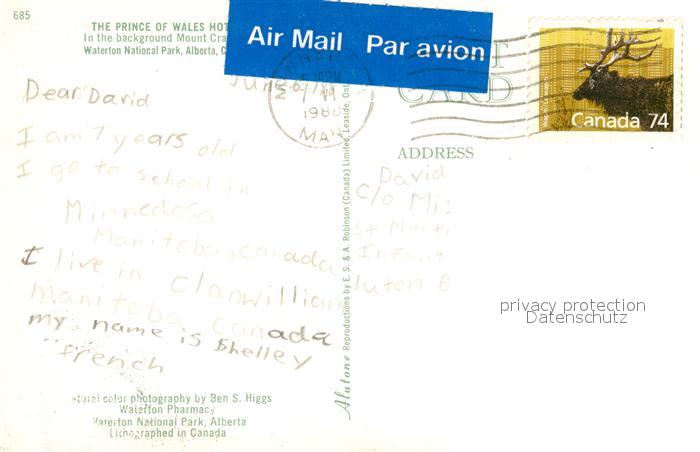 685
THE PRINCE OF WALES HOT
In the background Mount Cra
Waterton National Park, Alberta, C
Air Mail Par avion
CARD
Canada 74
June 6
1988
MAN
Dear David
I am 7 years old
I go to school in
Minnedosa
Manitoba, canada
I live in Clanwilliam
manitoba canada
my name is Shelley
french
ADDRESS
David
c/o Mis
St Marti
Infant
luton B
privacy protection
Datenschutz
Alutone Reproductions by E. S. & A. Robinson (Canada) Limited, Leaside, Ont.
tural color photography by Ben S. Higgs
Waterton Pharmacy
Waterton National Park, Alberta
Lithographed in Canada